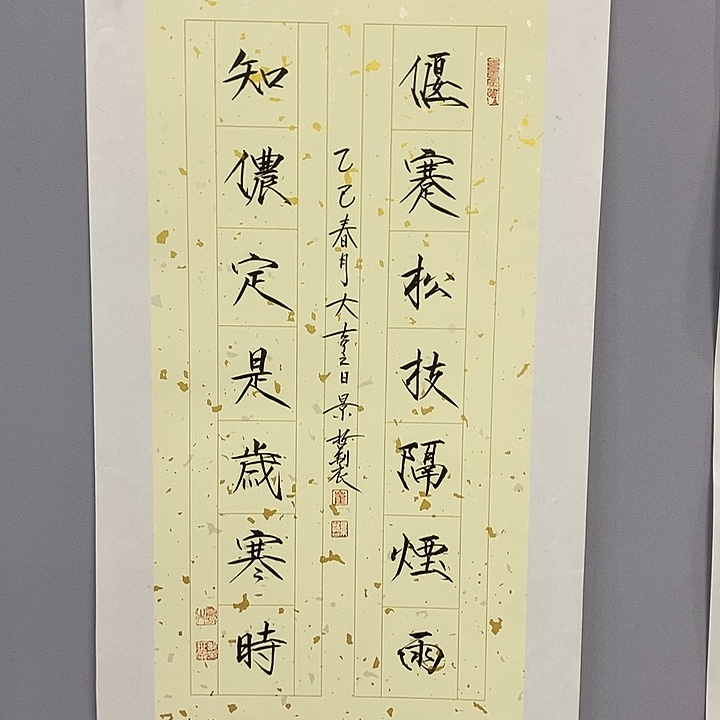 偃蹇松枝隔煙雨
乙巳春月大日景製
知儂定是歲寒時